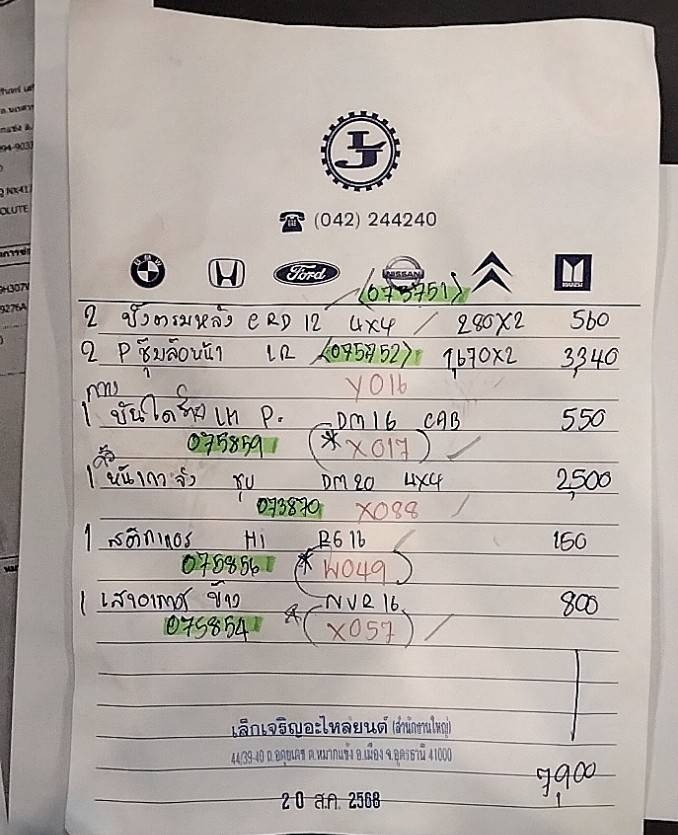 LJ
☎ (042) 244240
BMW H Ford NISSAN
(073751)
2 บังตรมหลัง CRD 12 4x4 / 280x2 560
2 P ซุ้มล้อหน้า LR (075752) 1,670x2 3,340
Y016
กาง
1 บันได LH P. DM16 CAB 550
075859 (* X017)
1 หน้า ชุบ DM20 4x4 2,500
073870 X088
1 สติกเกอร์ Hi RG16 150
075856 (* W049)
1 เสาอากาศ ข้าง NVR 16 800
075854 * (X057)
เล็กเจริญอะไหล่ยนต์ (สำนักงานใหญ่)
44/39-40 ถ.อดุยเดช ต.หมากแข้ง อ.เมือง จ.อุดรธานี 41000
7,900
20 ส.ค. 2568